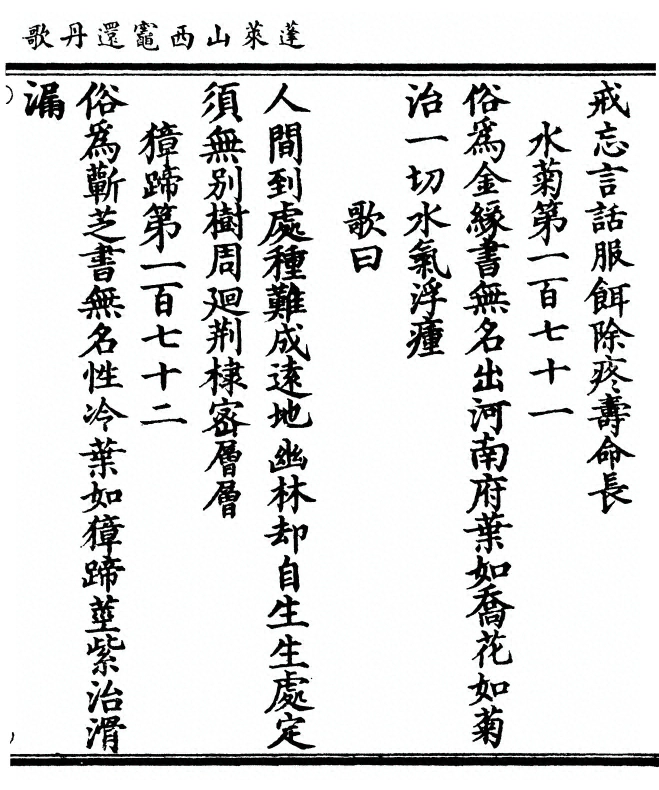 蓬萊山西竈還丹歌
戒忘言話服餌除疼壽命長
水菊第一百七十一
俗爲金緣書無名出河南府葉如喬花如菊
治一切水氣浮瘇
歌曰
人間到處種難成遠地幽林却自生生處定
須無別樹周迴荆棣密層層
獐蹄第一百七十二
俗爲蘄芝書無名性冷葉如獐蹄莖紫治滑
漏